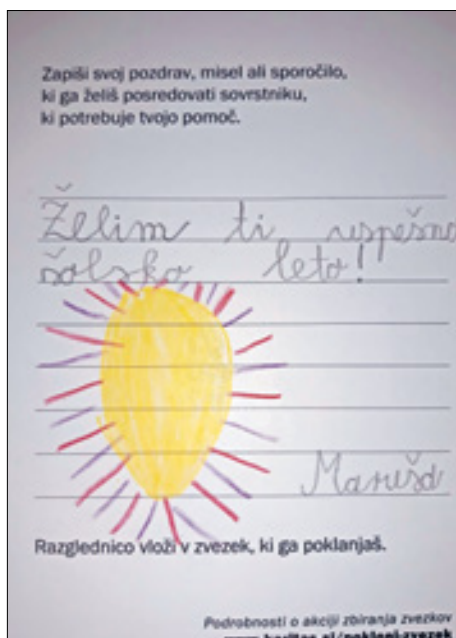 Zapiši svoj pozdrav, misel ali sporočilo,
ki ga želiš posredovati sovrstniku,
ki potrebuje tvojo pomoč.
Želim ti uspešno
šolsko leto!
Maruša
Razglednico vloži v zvezek, ki ga poklanjaš.
Podrobnosti o akciji zbiranja zvezkov
www.karitas.si/pokloni-zvezek